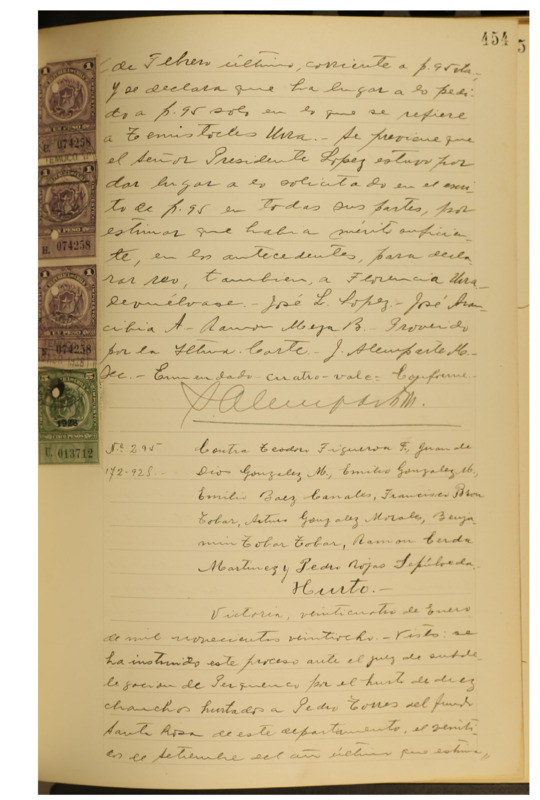 454
5
de Febrero último, corriente a p. 95 vta.
Y se declara que ha lugar a lo pedi-
do a p. 95 solo en lo que se refiere
a Temistocles Urra.- Se previene que
el Señor Presidente Lopez estuvo por
dar lugar a lo solicitado en el escri-
to de p. 95 en todas sus partes, por
estimar que habia mérito suficien-
te, en los antecedentes, para decla-
rar reo, tambien, a Florencia Urra-
Devuélvase.- José L. Lopez- José Aran-
cibia A- Ramon Meza B.- Proveido
por la Iltma. Corte.- J. Alemparte M.-
Sec.- Enmendado-cuatro-vale= Conforme.
Alemparte M.
No. 295
172-928-
Contra Teodoro Figueroa F, Juan de
Dios Gonzalez M, Emilio Gonzalez M,
Emilio Baez Canales, Francisco
Tobar, Arturo Gonzalez Morales, Benja-
min Tobar Tobar, Ramon Cerda
Martinez y Pedro Rojas Sepúlveda.
Hurto.-
Victoria, veinticuatro de Enero
de mil novecientos veintiocho.- Visto: se
ha instruido este proceso ante el juez de subde-
legacion de Perquenco por el hurto de diez
chanchos hurtados a Pedro Torres del fundo
Santa Rosa de este departamento, el veinti-
dos de Setiembre del año último que estima
1
UN PESO
074258
1
UN PESO
074258
1
UN PESO
074258
1928
013712